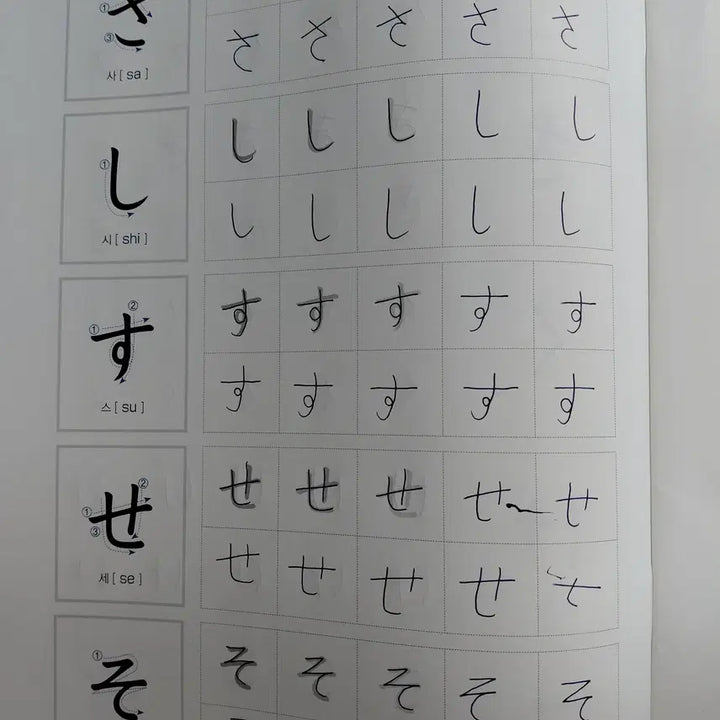 ① さ さ さ さ さ
③ さ さ さ さ さ
사[ sa ]
① し し し し し し
し し し し し
시[ shi ]
① ② す す す す す す
す す す す す
스[ su ]
① ② ③ せ せ せ せ せ せ
せ せ せ せ せ
세[ se ]
① そ そ そ そ そ そ